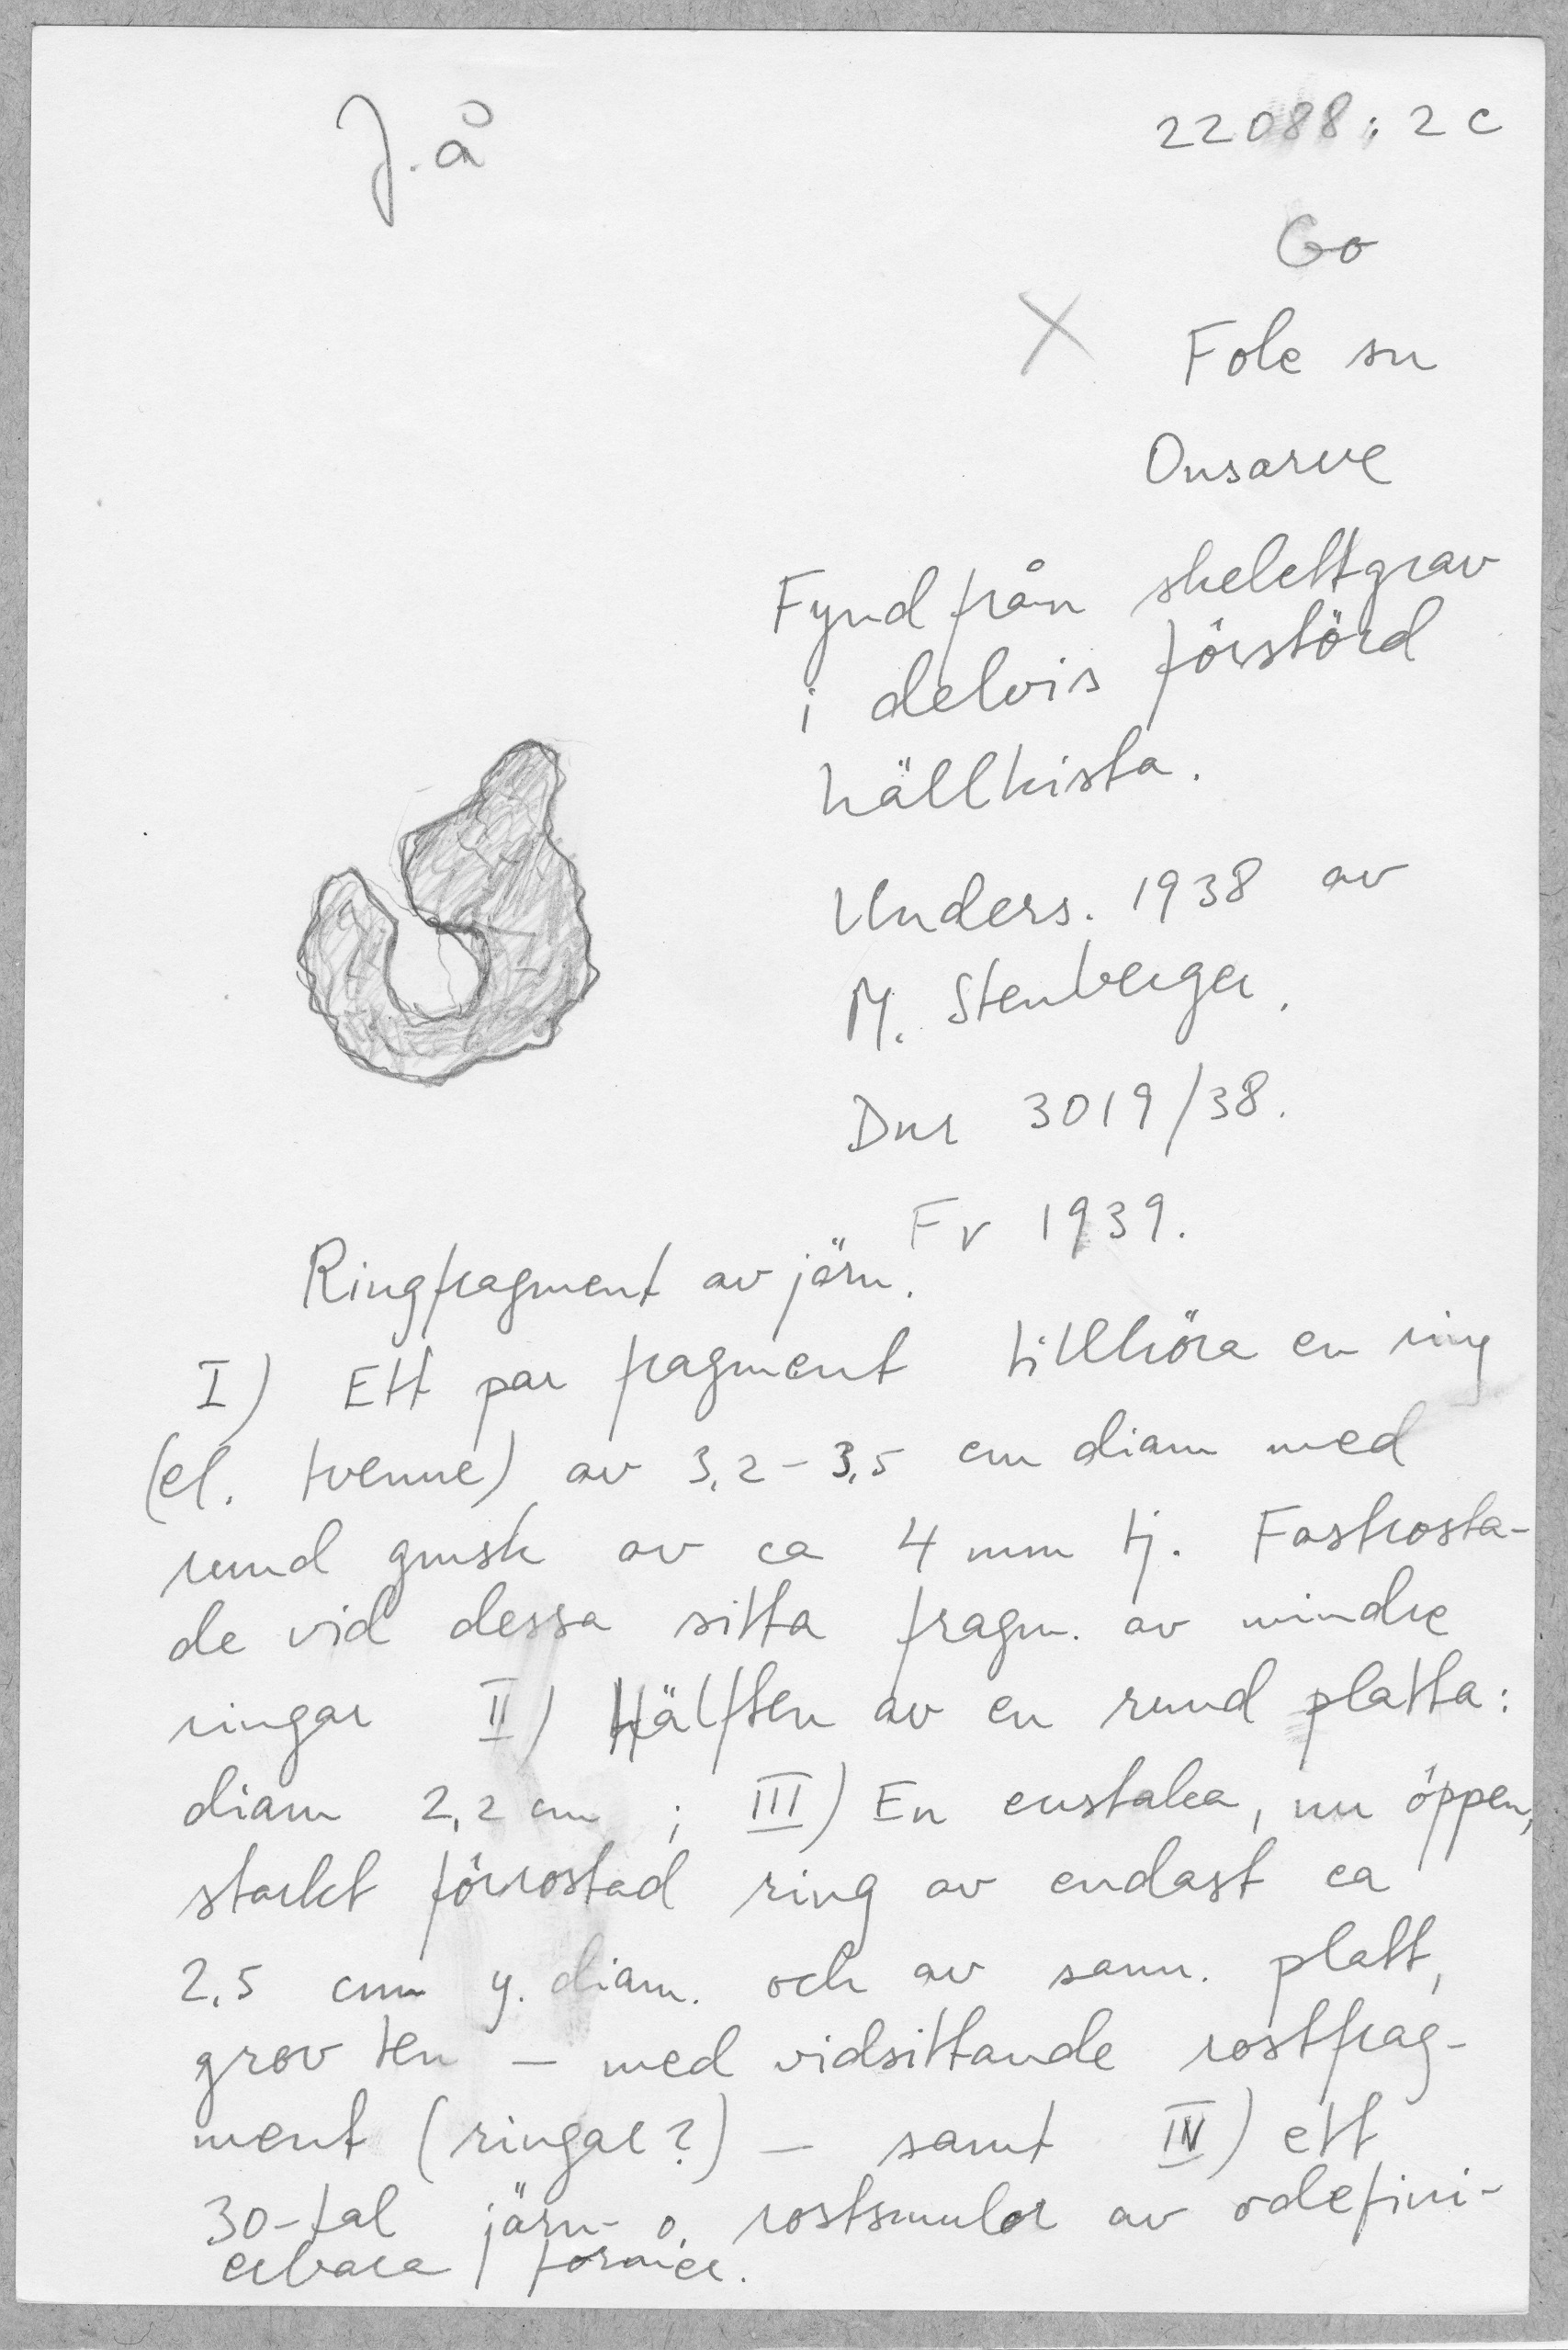 J.å
22088:2c
Go
X Fole sn
Onsarve
Fynd från skelettgrav
i delvis förstörd
hällkista.
Unders. 1938 av
M. Stenberger.
Dnr 3019/38.
Fv 1939.
Ringfragment av järn.
I) Ett par fragment tillhöra en ring
(el. tvenne) av 3,2-3,5 cm diam med
rund gmsk av ca 4 mm tj. Fastrosta-
de vid dessa sitta fragm. av mindre
ringar II) Hälften av en rund platta:
diam 2,2 cm ; III) En enstaka, nu öppen,
starkt förrostad ring av endast ca
2,5 cm y. diam. och av sann. platt,
grov ten – med vidsittande rostfrag-
ment (ringar?) – samt IV) ett
30-tal järn- o. rostsmulor av odefini-
erbara former.